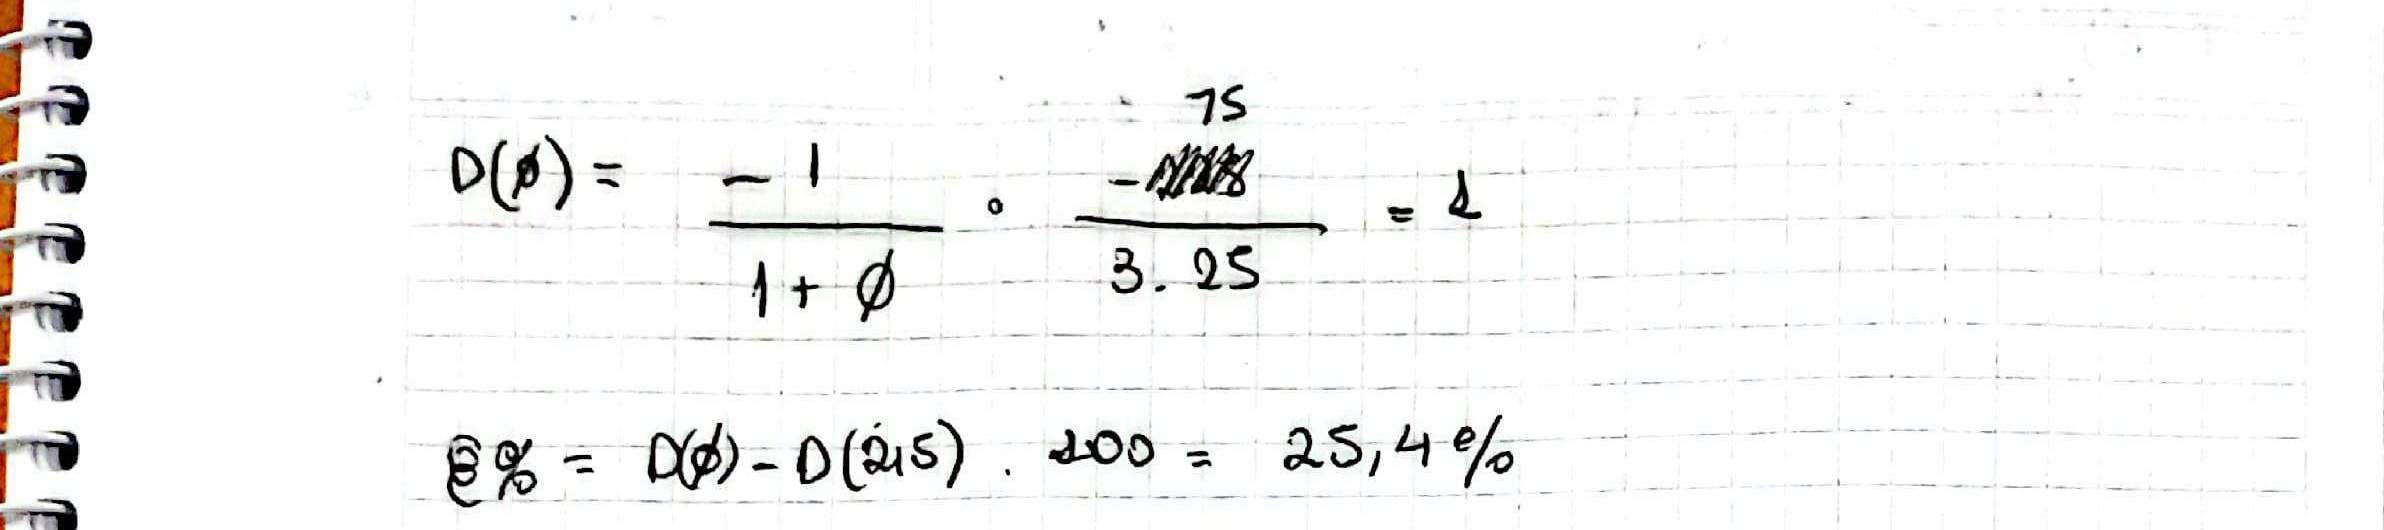 D(ø) = -1 / 1 + ø · -75 / 3.25 = 1
e% = D(ø) - D(2,5) . 100 = 25,4%